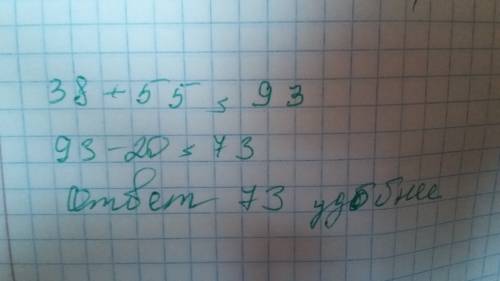 38 + 55 = 93
93 - 20 = 73
Ответ 73